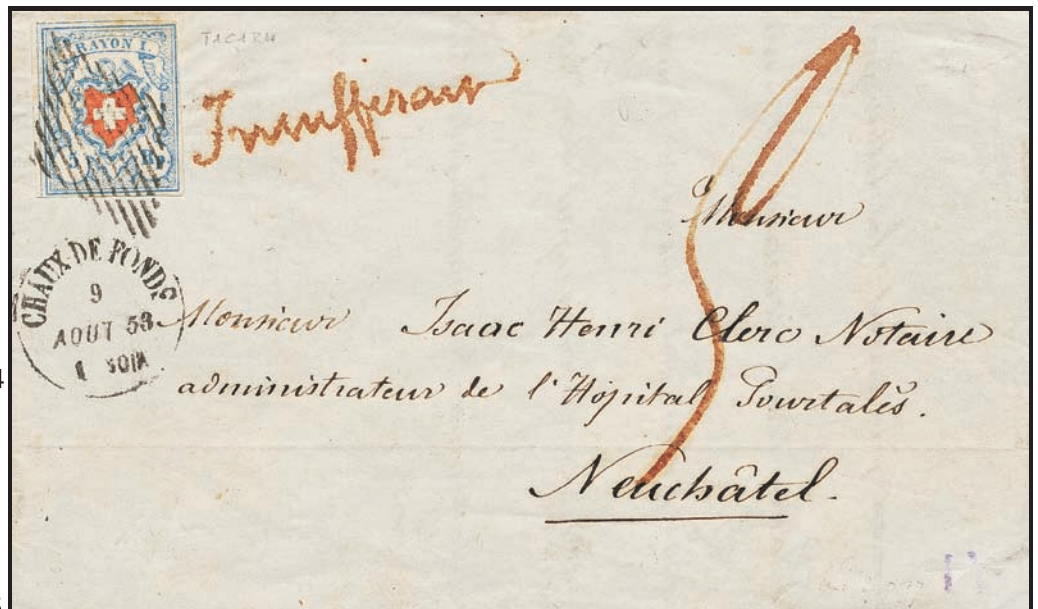 RAYON I.
5 Rp.
Insuffisant
Monsieur
CHAUX DE FONDS
9
AOUT 53
1 SOIR
Monsieur Isaac Henri Clerc Notaire
administrateur de l'Hôpital Pourtalès.
Neuchâtel.